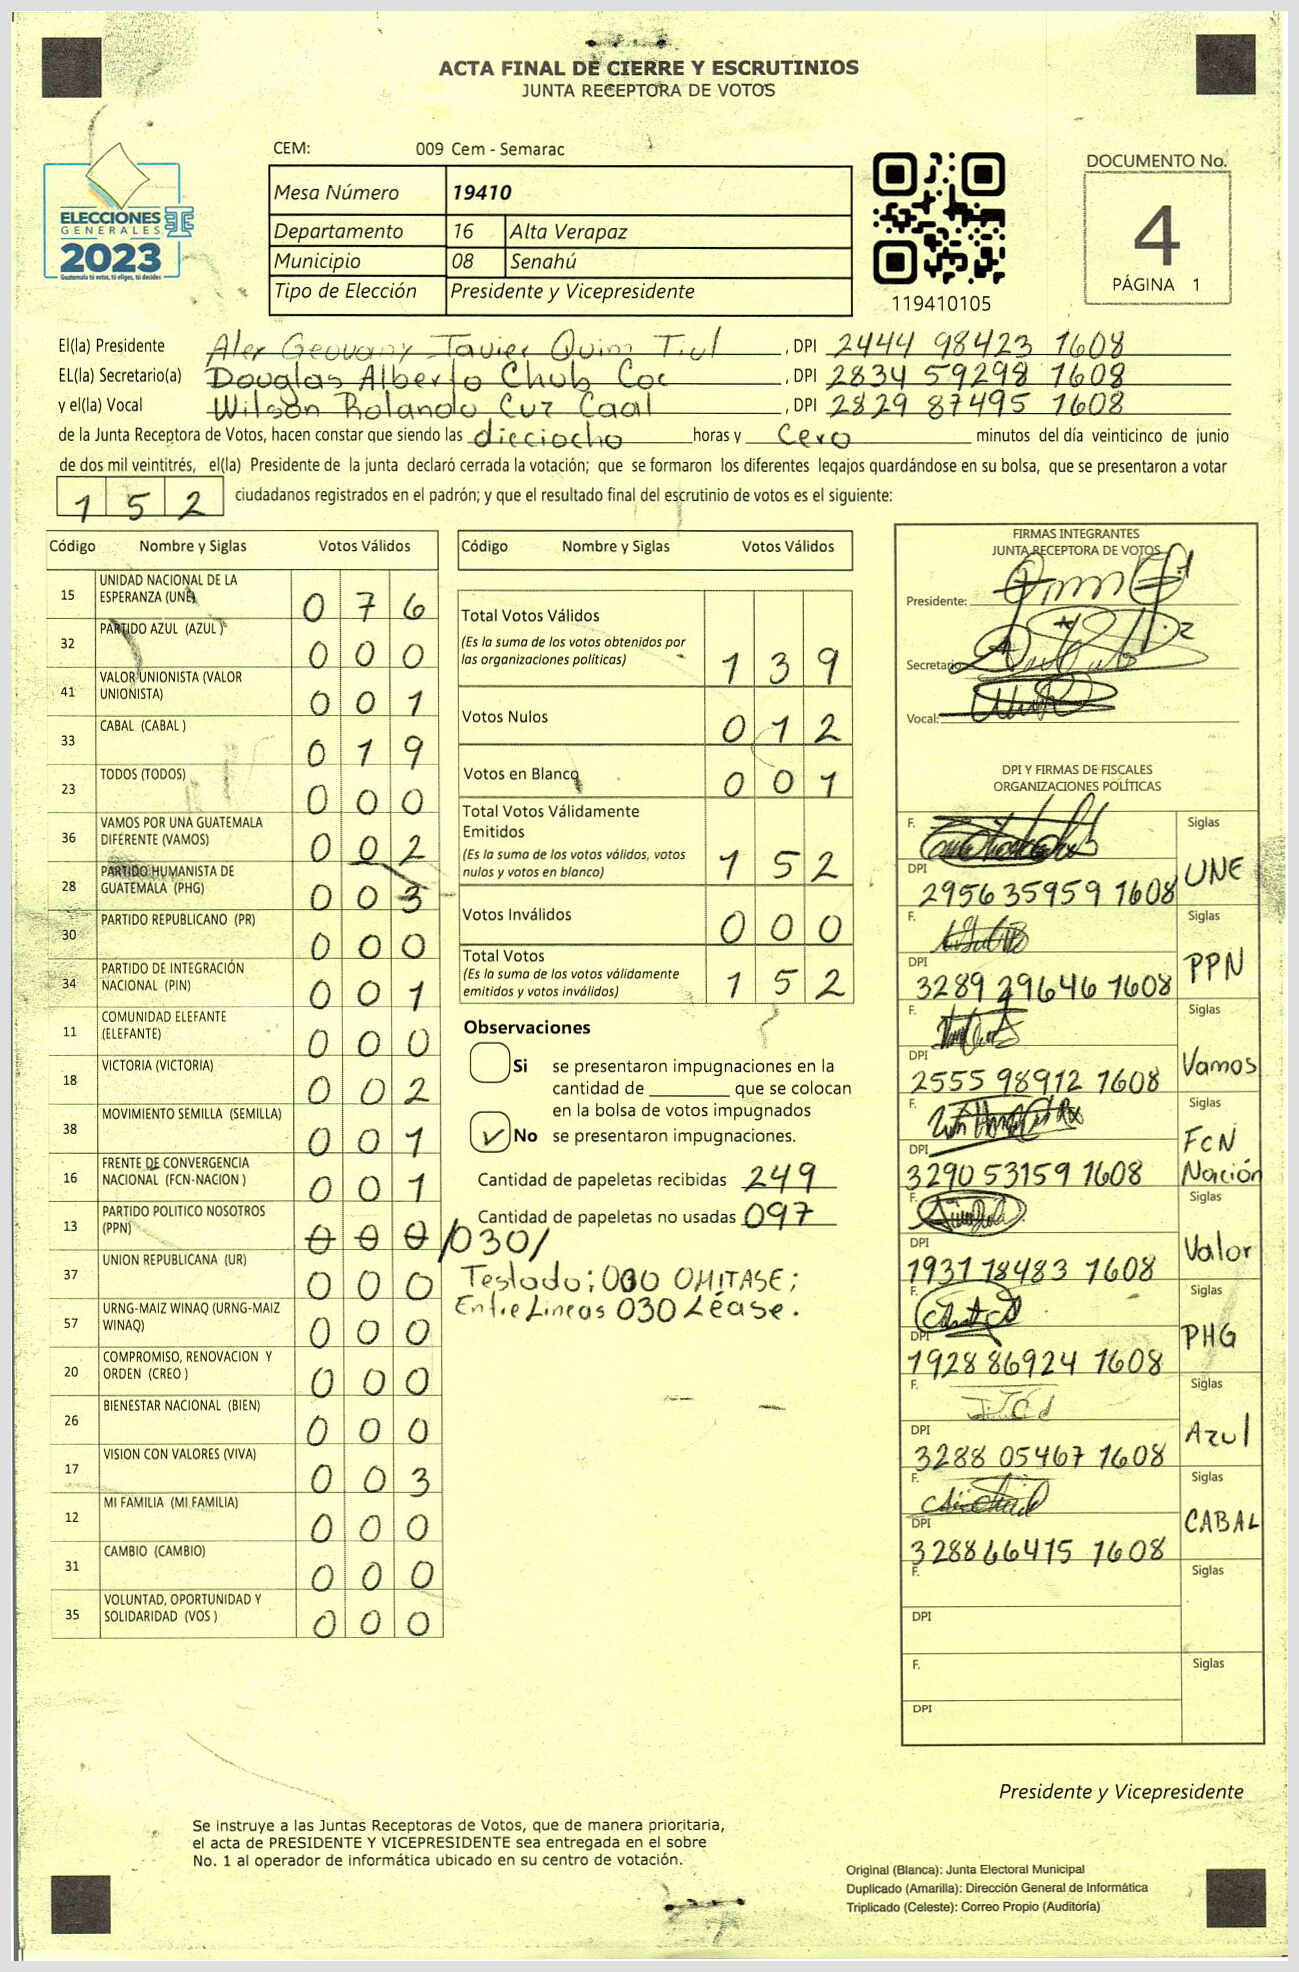 ACTA FINAL DE CIERRE Y ESCRUTINIOS
JUNTA RECEPTORA DE VOTOS
CEM: 009 Cem - Semarac
Mesa Número 19410
Departamento 16 Alta Verapaz
Municipio 08 Senahú
Tipo de Elección Presidente y Vicepresidente
ELECCIONES
GENERALES
2023
Guatemala tú votas, tú eliges, tú decides
119410105
DOCUMENTO No.
4
PÁGINA 1
El(la) Presidente Alex Geovany Javier Quim Tiul, DPI 2444 98423 1608
EL(la) Secretario(a) Douglas Alberto Chub Coc, DPI 2834 59298 1608
y el(la) Vocal Wilson Rolando Cuz Caal, DPI 2829 87495 1608
de la Junta Receptora de Votos, hacen constar que siendo las dieciocho horas y cero minutos del día veinticinco de junio
de dos mil veintitrés, el(la) Presidente de la junta declaró cerrada la votación; que se formaron los diferentes legajos guardándose en su bolsa, que se presentaron a votar
152 ciudadanos registrados en el padrón; y que el resultado final del escrutinio de votos es el siguiente:
Código Nombre y Siglas Votos Válidos
15 UNIDAD NACIONAL DE LA ESPERANZA (UNE) 076
32 PARTIDO AZUL (AZUL ) 000
41 VALOR UNIONISTA (VALOR UNIONISTA) 001
33 CABAL (CABAL ) 019
23 TODOS (TODOS) 000
36 VAMOS POR UNA GUATEMALA DIFERENTE (VAMOS) 002
28 PARTIDO HUMANISTA DE GUATEMALA (PHG) 003
30 PARTIDO REPUBLICANO (PR) 000
34 PARTIDO DE INTEGRACIÓN NACIONAL (PIN) 001
11 COMUNIDAD ELEFANTE (ELEFANTE) 000
18 VICTORIA (VICTORIA) 002
38 MOVIMIENTO SEMILLA (SEMILLA) 001
16 FRENTE DE CONVERGENCIA NACIONAL (FCN-NACION ) 001
13 PARTIDO POLITICO NOSOTROS (PPN) 000 /030/
37 UNION REPUBLICANA (UR) 000
57 URNG-MAIZ WINAQ (URNG-MAIZ WINAQ) 000
20 COMPROMISO, RENOVACION Y ORDEN (CREO ) 000
26 BIENESTAR NACIONAL (BIEN) 000
17 VISION CON VALORES (VIVA) 003
12 MI FAMILIA (MI FAMILIA) 000
31 CAMBIO (CAMBIO) 000
35 VOLUNTAD, OPORTUNIDAD Y SOLIDARIDAD (VOS ) 000
Código Nombre y Siglas Votos Válidos
Total Votos Válidos
(Es la suma de los votos obtenidos por
las organizaciones políticas) 139
Votos Nulos 012
Votos en Blanco 001
Total Votos Válidamente
Emitidos
(Es la suma de los votos válidos, votos
nulos y votos en blanco) 152
Votos Inválidos 000
Total Votos
(Es la suma de los votos válidamente
emitidos y votos inválidos) 152
Observaciones
Si se presentaron impugnaciones en la
cantidad de ________ que se colocan
en la bolsa de votos impugnados
No se presentaron impugnaciones.
Cantidad de papeletas recibidas 249
Cantidad de papeletas no usadas 097
Testado; 000 OMITASE;
Entre Lineas 030 Léase.
FIRMAS INTEGRANTES
JUNTA RECEPTORA DE VOTOS
Presidente:
Secretario
Vocal:
DPI Y FIRMAS DE FISCALES
ORGANIZACIONES POLÍTICAS
F. Siglas
DPI 2956 35959 1608 UNE
F. Siglas
DPI 3289 29646 1608 PPN
F. Siglas
DPI 2555 98912 1608 Vamos
F. Siglas
DPI 3290 53159 1608 FCN Nación
F. Siglas
DPI 1931 18483 1608 Valor
F. Siglas
DPI 1928 86924 1608 PHG
F. Siglas
DPI 3288 05467 1608 Azul
F. Siglas
DPI 3288 66415 1608 CABAL
F. Siglas
DPI
F. Siglas
DPI
Presidente y Vicepresidente
Se instruye a las Juntas Receptoras de Votos, que de manera prioritaria,
el acta de PRESIDENTE Y VICEPRESIDENTE sea entregada en el sobre
No. 1 al operador de informática ubicado en su centro de votación.
Original (Blanca): Junta Electoral Municipal
Duplicado (Amarilla): Dirección General de Informática
Triplicado (Celeste): Correo Propio (Auditoría)